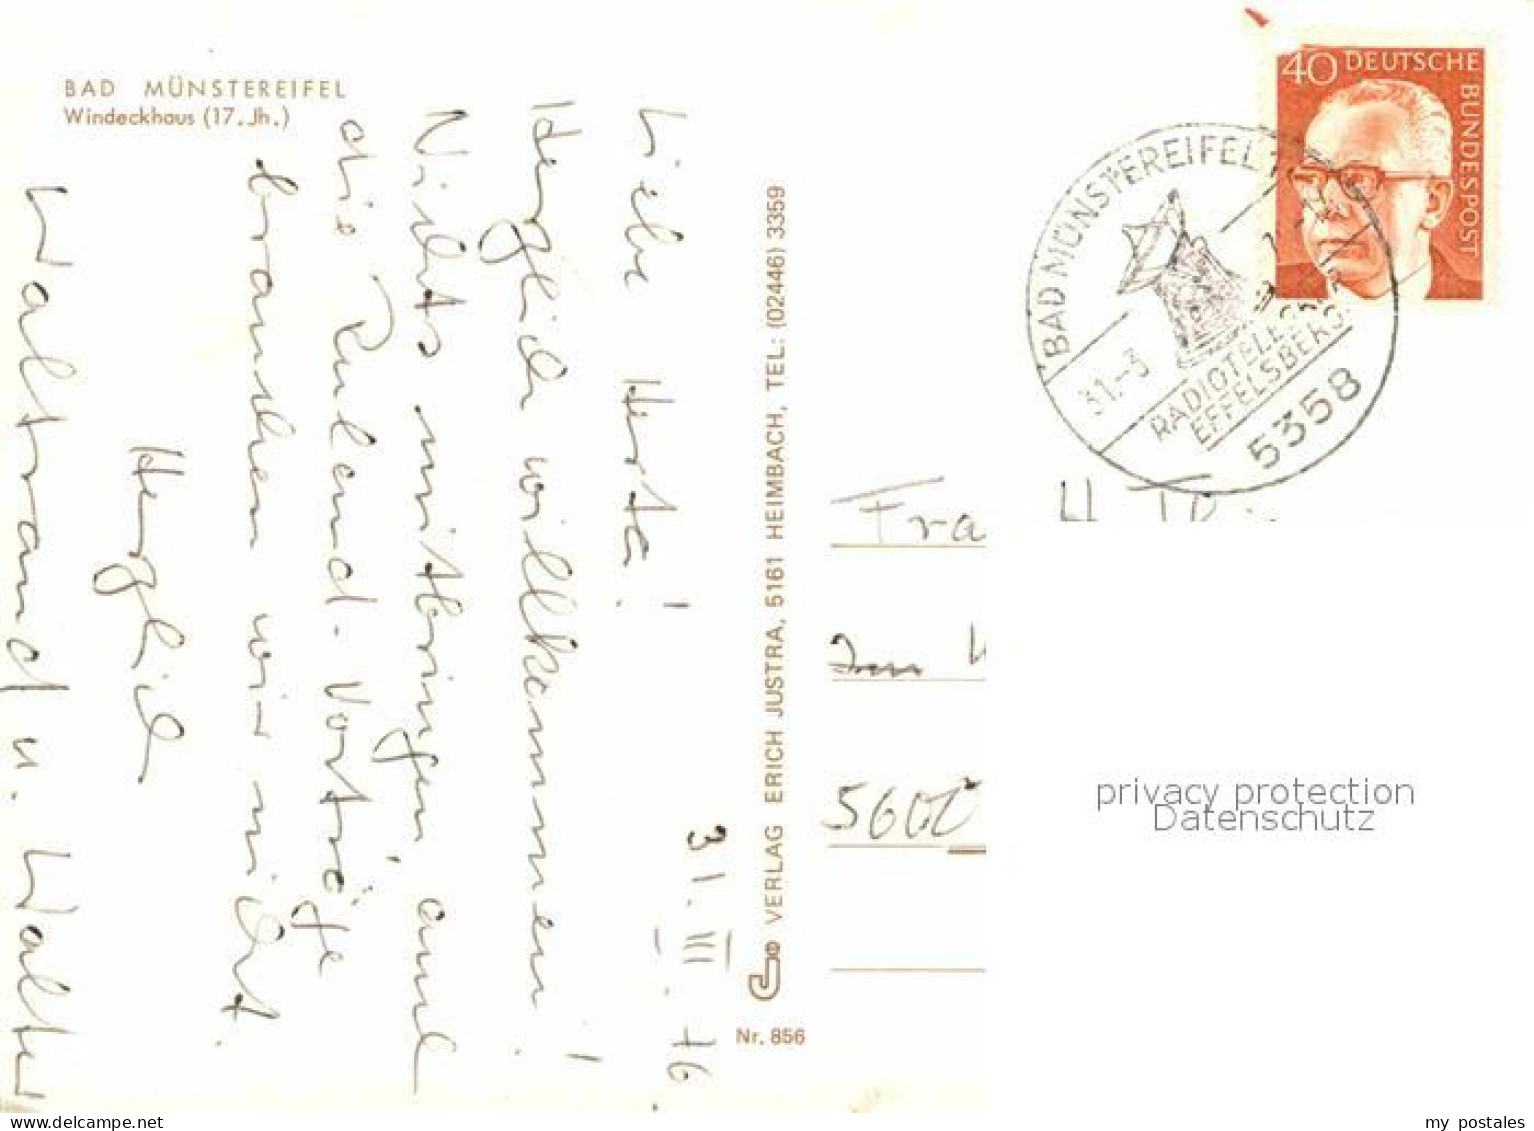 BAD MÜNSTEREIFEL
Windeckhaus (17. Jh.)
31. III. 76
Liebe Herta!
Herzlich willkommen!
Nichts mitbringen, auch
die Ruland-Vorträge
brauchen wir nicht.
Herzlich
Waltraud u. Walter
VERLAG ERICH JUSTRA, 5161 HEIMBACH, TEL: (02446) 3359
Nr. 856
40 DEUTSCHE
BUNDESPOST
BAD MÜNSTEREIFEL 1
31.-3
EFFELSBERG
5358
Frau
privacy protection
Datenschutz
my postales